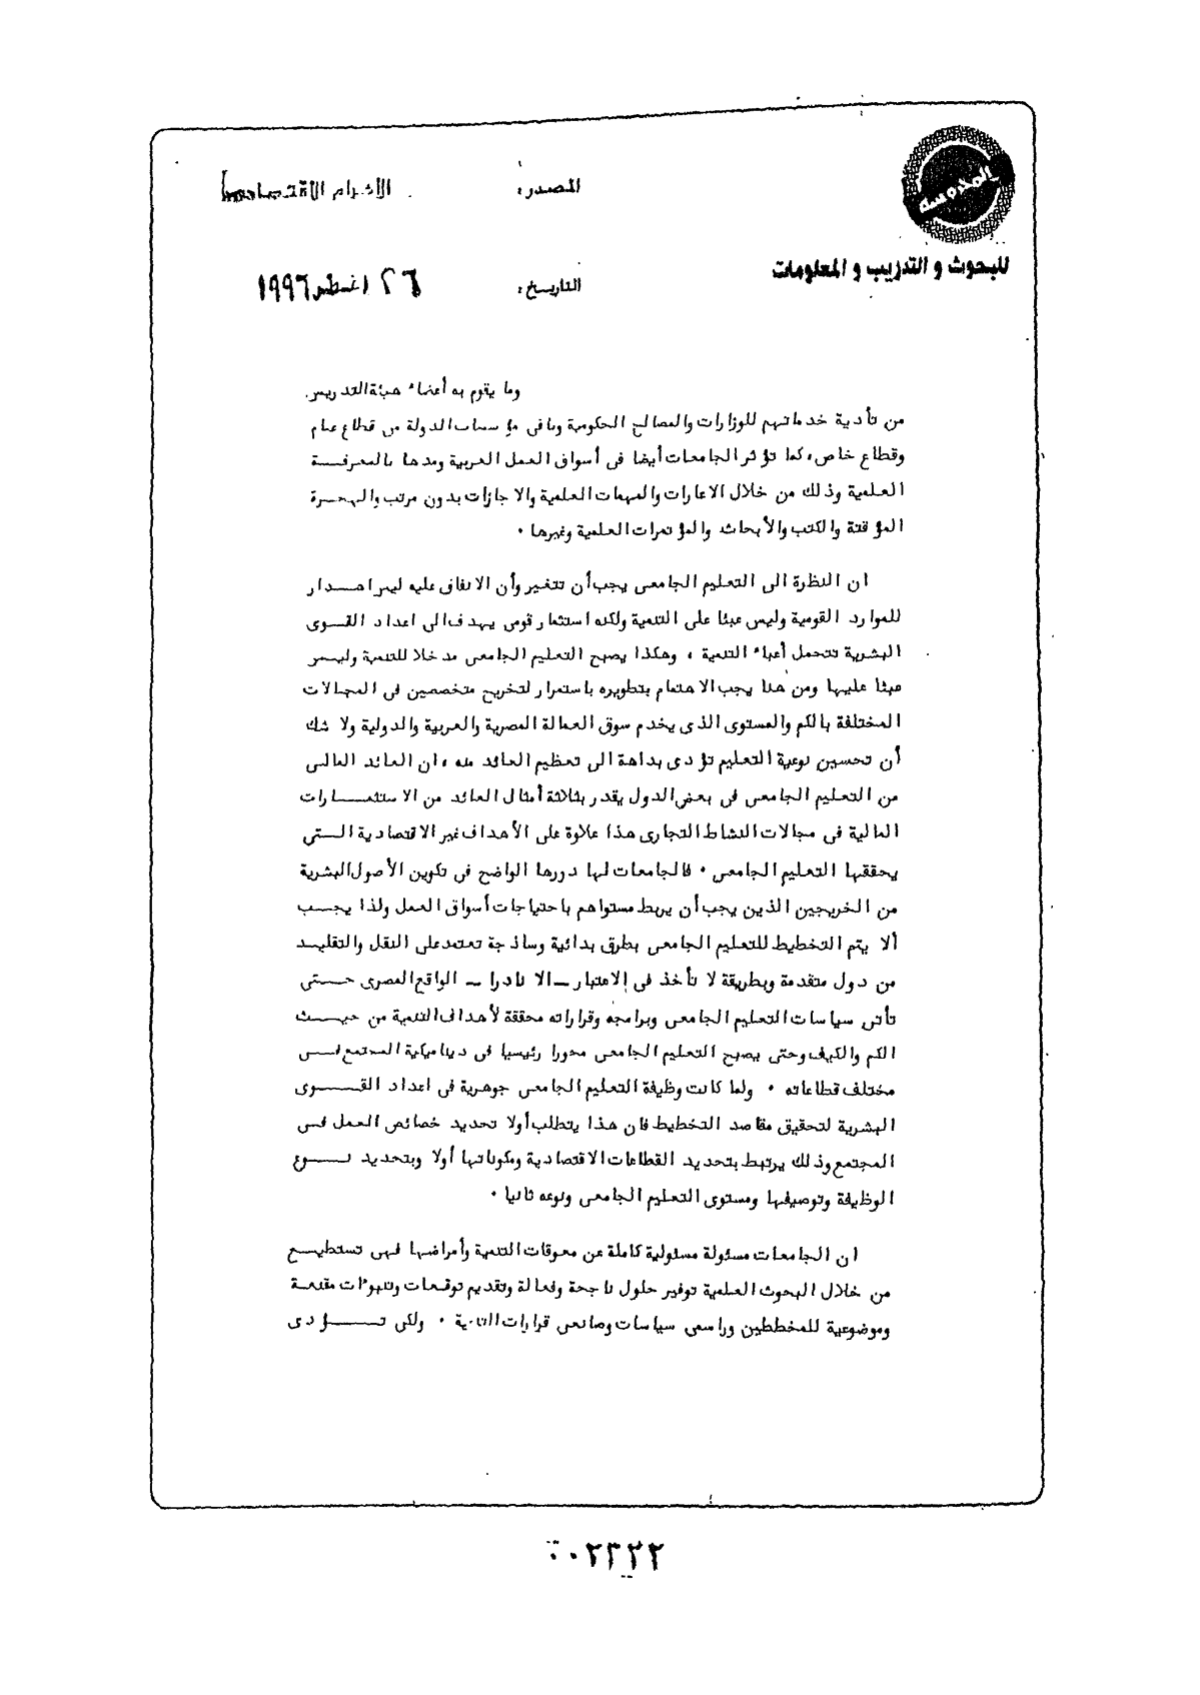 المحروسه
المصدر: الاهرام الاقتصادى
للبحوث و التدريب و المعلومات
التاريخ: ٢٦ اغسطس ١٩٩٦
وما يقوم به أعضاء هيئة التدريس
من تأدية خدماتهم للوزارات والمصالح الحكومية وباقى مؤسسات الدولة من قطاع عام
وقطاع خاص، كما تؤثر الجامعات أيضا فى أسواق العمل العربية ومدها بالمعرفة
العلمية وذلك من خلال الاعارات والمهمات العلمية والاجازات بدون مرتب والهجرة
المؤقتة والكتب والأبحاث والمؤتمرات العلمية وغيرها .
ان النظرة الى التعليم الجامعى يجب أن تتغير وأن الانفاق عليه ليس اهدار
للموارد القومية وليس عبئا على التنمية ولكنه استثمار قومى يهدف الى اعداد القوى
البشرية تتحمل أعباء التنمية ، وهكذا يصبح التعليم الجامعى مدخلا للتنمية وليس
عبئا عليها ومن هنا يجب الاهتمام بتطويره باستمرار لتخريج متخصصين فى المجالات
المختلفة بالكم والمستوى الذى يخدم سوق العمالة المصرية والعربية والدولية ولا شك
أن تحسين نوعية التعليم تؤدى بداهة الى تعظيم العائد منه ، ان العائد المالى
من التعليم الجامعى فى بعض الدول يقدر بثلاثة أمثال العائد من الاستثمارات
المالية فى مجالات النشاط التجارى هذا علاوة على الأهداف غير الاقتصادية التى
يحققها التعليم الجامعى . فالجامعات لها دورها الواضح فى تكوين الأصول البشرية
من الخريجين الذين يجب أن يربط مستواهم باحتياجات أسواق العمل ولذا يجب
ألا يتم التخطيط للتعليم الجامعى بطرق بدائية وساذجة تعتمد على النقل والتقليد
من دول متقدمة وبطريقة لا تأخذ فى الاعتبار ــ الا نادرا ــ الواقع المصرى حتى
تأتى سياسات التعليم الجامعى وبرامجه وقراراته محققة لأهداف التنمية من حيث
الكم والكيف وحتى يصبح التعليم الجامعى محورا رئيسيا فى ديناميكية المجتمع فى
مختلف قطاعاته . ولما كانت وظيفة التعليم الجامعى جوهرية فى اعداد القوى
البشرية لتحقيق مقاصد التخطيط فان هذا يتطلب أولا تحديد خصائص العمل فى
المجتمع وذلك يرتبط بتحديد القطاعات الاقتصادية ومكوناتها أولا وبتحديد نوع
الوظيفة وتوصيفها ومستوى التعليم الجامعى ونوعه ثانيا .
ان الجامعات مسئولة مسئولية كاملة عن معوقات التنمية وأمراضها فهى تستطيع
من خلال البحوث العلمية توفير حلول ناجحة وفعالة وتقديم توقعات وتنبوءات مقنعة
وموضوعية للمخططين وراسمى سياسات وصانعى قرارات التنمية . ولكى تؤدى
٠٠٢٣٣٢